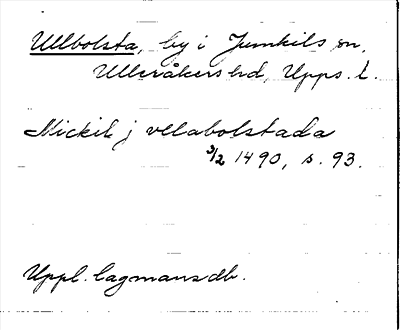 Ullbolsta, by i Jumkils sn,
Ulleråkers hd, Upps. l.
Mickil j vllabolstada
3/2 1490, s. 93.
Uppl. lagmansdb.